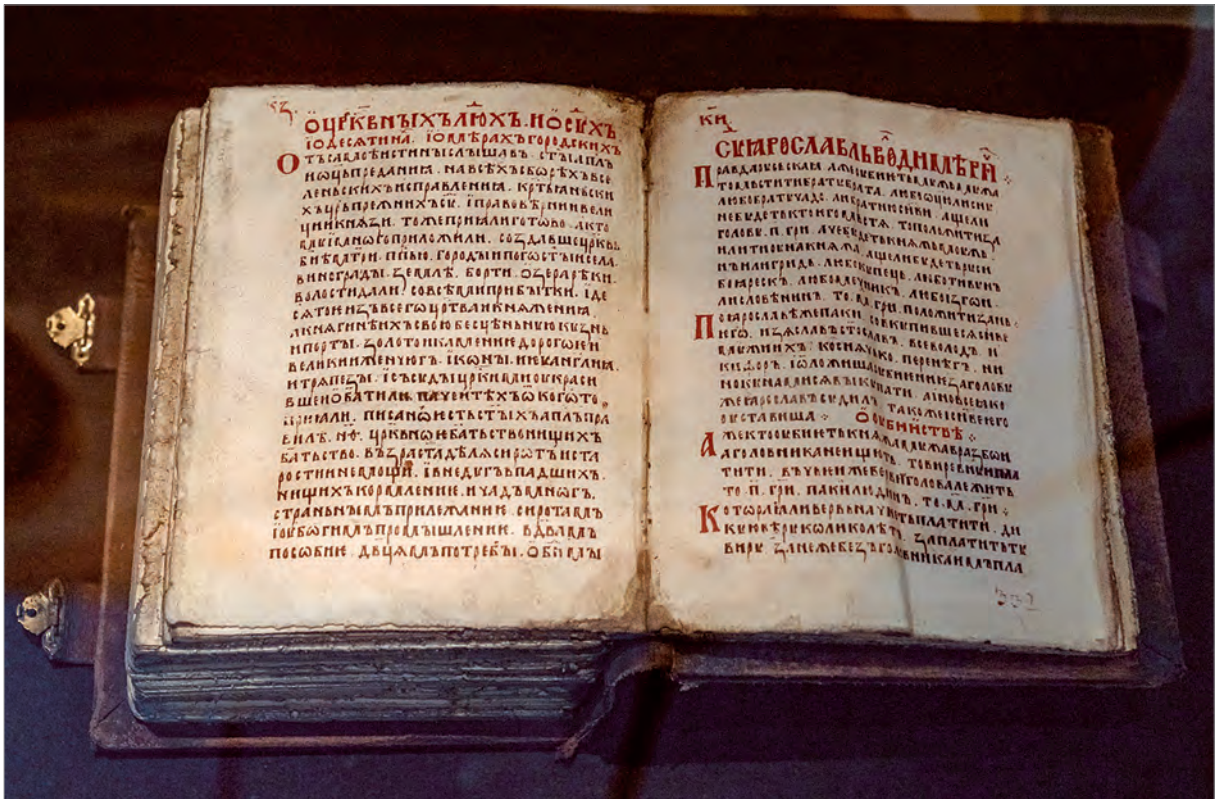 ѯз
Ѡ цр҃квныхъ людⷯехъ. и ѡ сѹⷣхъ
ї ѡ десѧтина. ї ѡ мѣрахъ городскихъ
Отъ самⷪ истины слышавъ. ст҃ыⷯ ап҃лъ
и ѡц҃ь преданиꙗ. на всѣхъ съборѣхъ все
леньскихъ исправлениꙗ. крⷭ҇тьꙗньски
хъ цр҃ь
и кнѧзи. тоже приꙗли готово.
приложили. создавше цр҃квь
городы и погосты и села
винограды. землѣ. борти. ѡзера рѣки.
волости дани. со всѣми прибытки. ї де
сѧтое изъ всего црⷭ҇тва и кнѧжениꙗ.
свою бесцѣньную кузнь
и порты. золото и каменне дорогое и
великии женчюгъ. їконы. и еѹангꙗлиꙗ.
и трѧпезы. ї съсуды цр҃кии ꙗми украси
вше
приꙗли. писано и ѿ ст҃ыхъ ап҃лъ пра
вилъ. но цр҃квное батьство нищихъ
батьство. възраста дѣлѧ сиротъ и ста
рости и немощи. ї в недугъ впадшихъ.
нищихъ кормление. и чадъ мноⷢ҇.
страньнымъ прилежание. сиротамъ
ї ѹбогимъ промышление. вдвамъ
пособие. дв҃цꙗмъ потребы. ѡби
ки
Сѹⷣ ꙗрославль володимѣриⷱ
Правда русскаꙗ. аже убиеть мужь мужа
то мьстити брату брата. любо ѡц҃ю ли сн҃у
любо брату чадо. ли братню сн҃ви. аще ли
не будеть кто ѥго мьстѧ. то положити за
голову. п҃. грн҃. аче будеть кнѧжь мужь.
или тиѹна кнѧжа. аще ли будеть руси
нъ или гридь. любо купець. любо тивунъ
боꙗрескъ. любо мечникъ. любо изгои.
ли словѣнинъ. то. м҃. грн҃. положити зань.
По ꙗрославѣ же паки совкупившесѧ сн҃ве
иго. изѧславъ ст҃ославъ. всеволодъ. и
мужи ихъ. коснѧчько. перенѣгъ. ни
кифоръ. ї ѿложиша убиение за голову
но кунами сѧ выкупати. а ино все ꙗко
же ꙗрославъ судилъ. тако же и сн҃ве иго
уставиша
Ѡ убийствѣ
Аже кто убиеть кнѧжа мужа в разбои
а головника не ищють. то виревную пла
тити. въ чьеи же верви голова лежить
то. п҃. грн҃. паки людинъ. то. м҃. грн҃.
Которꙗꙗ ли вервь начнеть платити. ди
кую вѣру колико лѣтъ. заплатить ту
виру. зане же безъ головника имъ пла
331